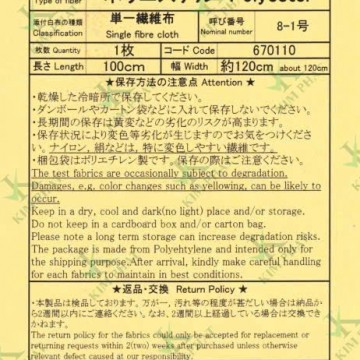 Type of fiber
添付白布の種類 単一繊維布 呼び番号 8-1号
Classification Single fibre cloth Nominal number
枚数 Quantity 1枚 コード Code 670110
長さ Length 100cm 幅 Width 約120cm about 120cm
★保存方法の注意点 Attention ★
・乾燥した冷暗所で保存してください。
・ダンボールやカートン袋などに入れて保存しないでください。
・長期間の保存は黄変などの劣化のリスクが高まります。
・保存状況により変色等劣化が生じますのでお気をつけください。
ナイロン，絹などは、特に変色しやすい繊維です。
・梱包袋はポリエチレン製です。保存の際はご注意ください。
The test fabrics are occasionally subject to degradation.
Damages, e.g. color changes such as yellowing, can be likely to
occur.
Keep in a dry, cool and dark(no light) place and/or storage.
Do not keep in a cardboard box and/or carton bag.
Please note a long term storage can increase degradation risks.
The package is made from Polyehtylene and intended only for
the shipping purpose. After arrival, kindly make careful handling
for each fabrics to maintain in best conditions.
★返品・交換 Return Policy ★
・本製品は検品しております。万が一，汚れ等の程度が甚だしい場合は納品か
ら2週間以内にご連絡ください。なお，2週間以上経過している場合は交換でき
かねます。
The return policy for the fabrics could only be accepted for replacement or
returning requests within 2(two) weeks after purchased unless otherwise
relevant defect caused at our responsibility.